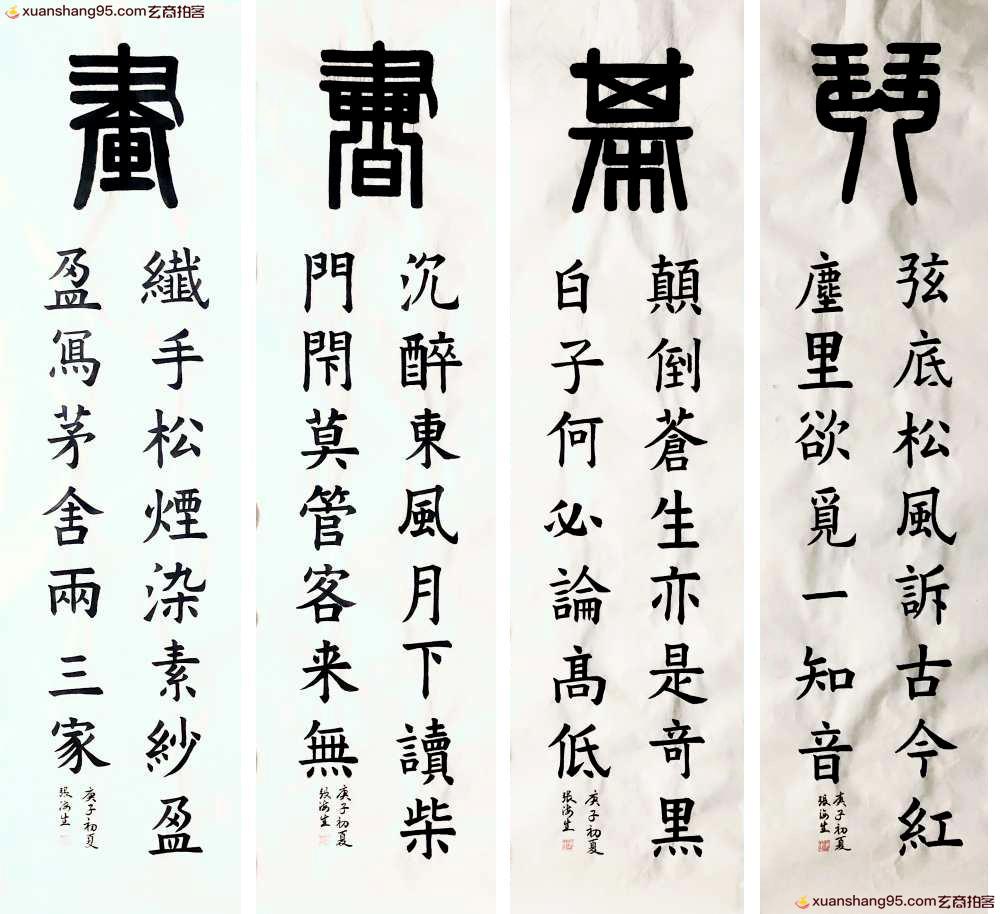 xuanshang95.com玄商拍客
琴
弦底松風訴古今紅
塵里欲覓一知音
庚子初夏
張海生
棊
顛倒蒼生亦是竒黑
白子何必論髙低
庚子初夏
張海生
書
沉醉東風月下讀柴
門閇莫管客来無
庚子初夏
張海生
畫
纖手松煙染素紗盈
盈寫茅舍兩三家
庚子初夏
張海生
xuanshang95.com玄商拍客